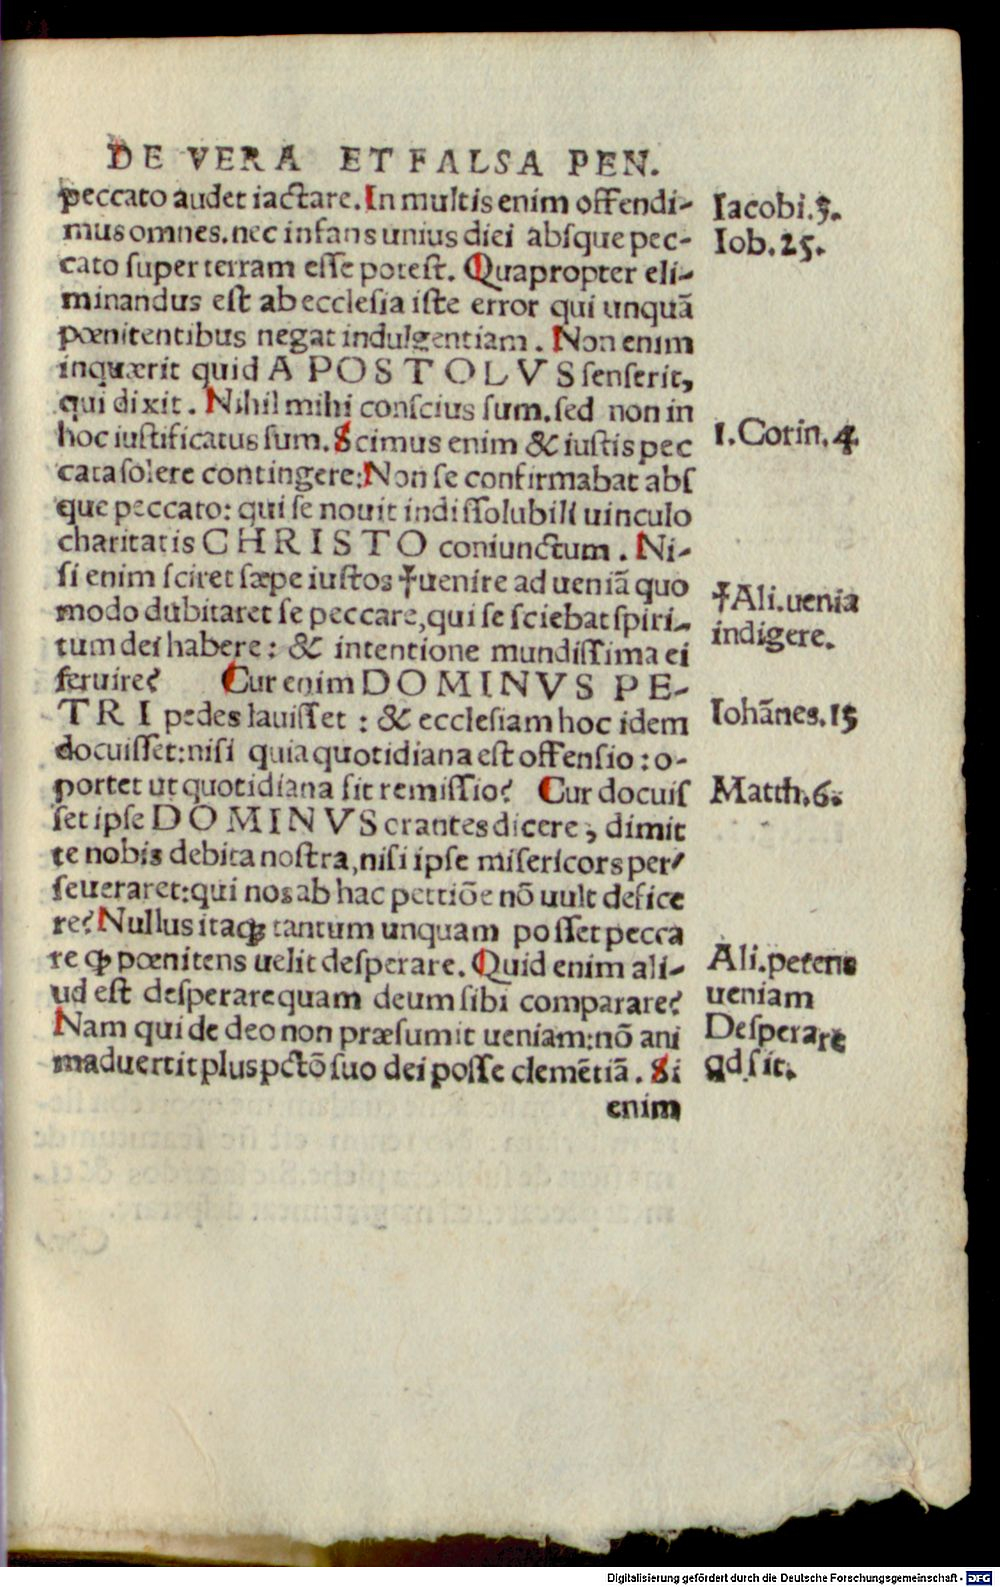 DE VERA ET FALSA PEN.
peccato audet iactare. In multis enim offendi-
mus omnes. nec infans unius diei absque pec-
cato super terram esse potest. Quapropter eli-
minandus est ab ecclesia iste error qui unquã
pœnitentibus negat indulgentiam. Non enim
inquærit quid APOSTOLVS senserit,
qui dixit. Nihil mihi conscius sum. sed non in
hoc iustificatus sum. Scimus enim & iustis pec
cata solere contingere: Non se confirmabat abs
que peccato: qui se nouit indissolubili uinculo
charitatis CHRISTO coniunctum. Ni-
si enim sciret sæpe iustos ☨uenire ad ueniã quo
modo dubitaret se peccare, qui se sciebat spiri-
tum dei habere: & intentione mundissima ei
seruire? Cur enim DOMINVS PE-
TRI pedes lauisset: & ecclesiam hoc idem
docuisset: nisi quia quotidiana est offensio: o-
portet ut quotidiana sit remissio? Cur docuis
set ipse DOMINVS orantes dicere, dimit
te nobis debita nostra, nisi ipse misericors per-
seueraret: qui nos ab hac petitiõe nõ uult defice
re? Nullus itaqꝫ tantum unquam posset pecca
re ꝙ pœnitens uelit desperare. Quid enim ali-
ud est desperare quam deum sibi comparare?
Nam qui de deo non præsumit ueniam: nõ ani
maduertit plus pctõ suo dei posse clemẽtiã. Si
enim
Iacobi.3.
Iob.25.
1.Corin.4.
☨Ali.uenia
indigere.
Iohãnes.15
Matth.6.
Ali.petens
ueniam
Desperare
qd sit.
Digitalisierung gefördert durch die Deutsche Forschungsgemeinschaft - DFG